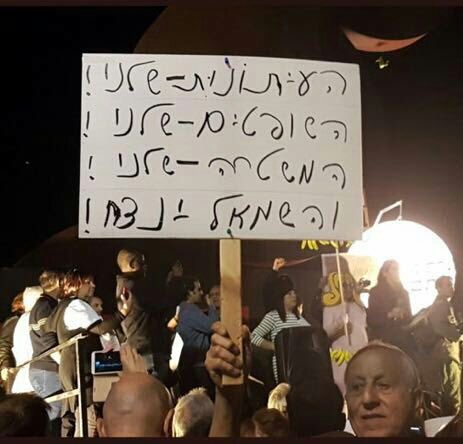 העיתונות-שלנו!
השופטים-שלנו!
המשטרה-שלנו!
והשמאל ינצח!